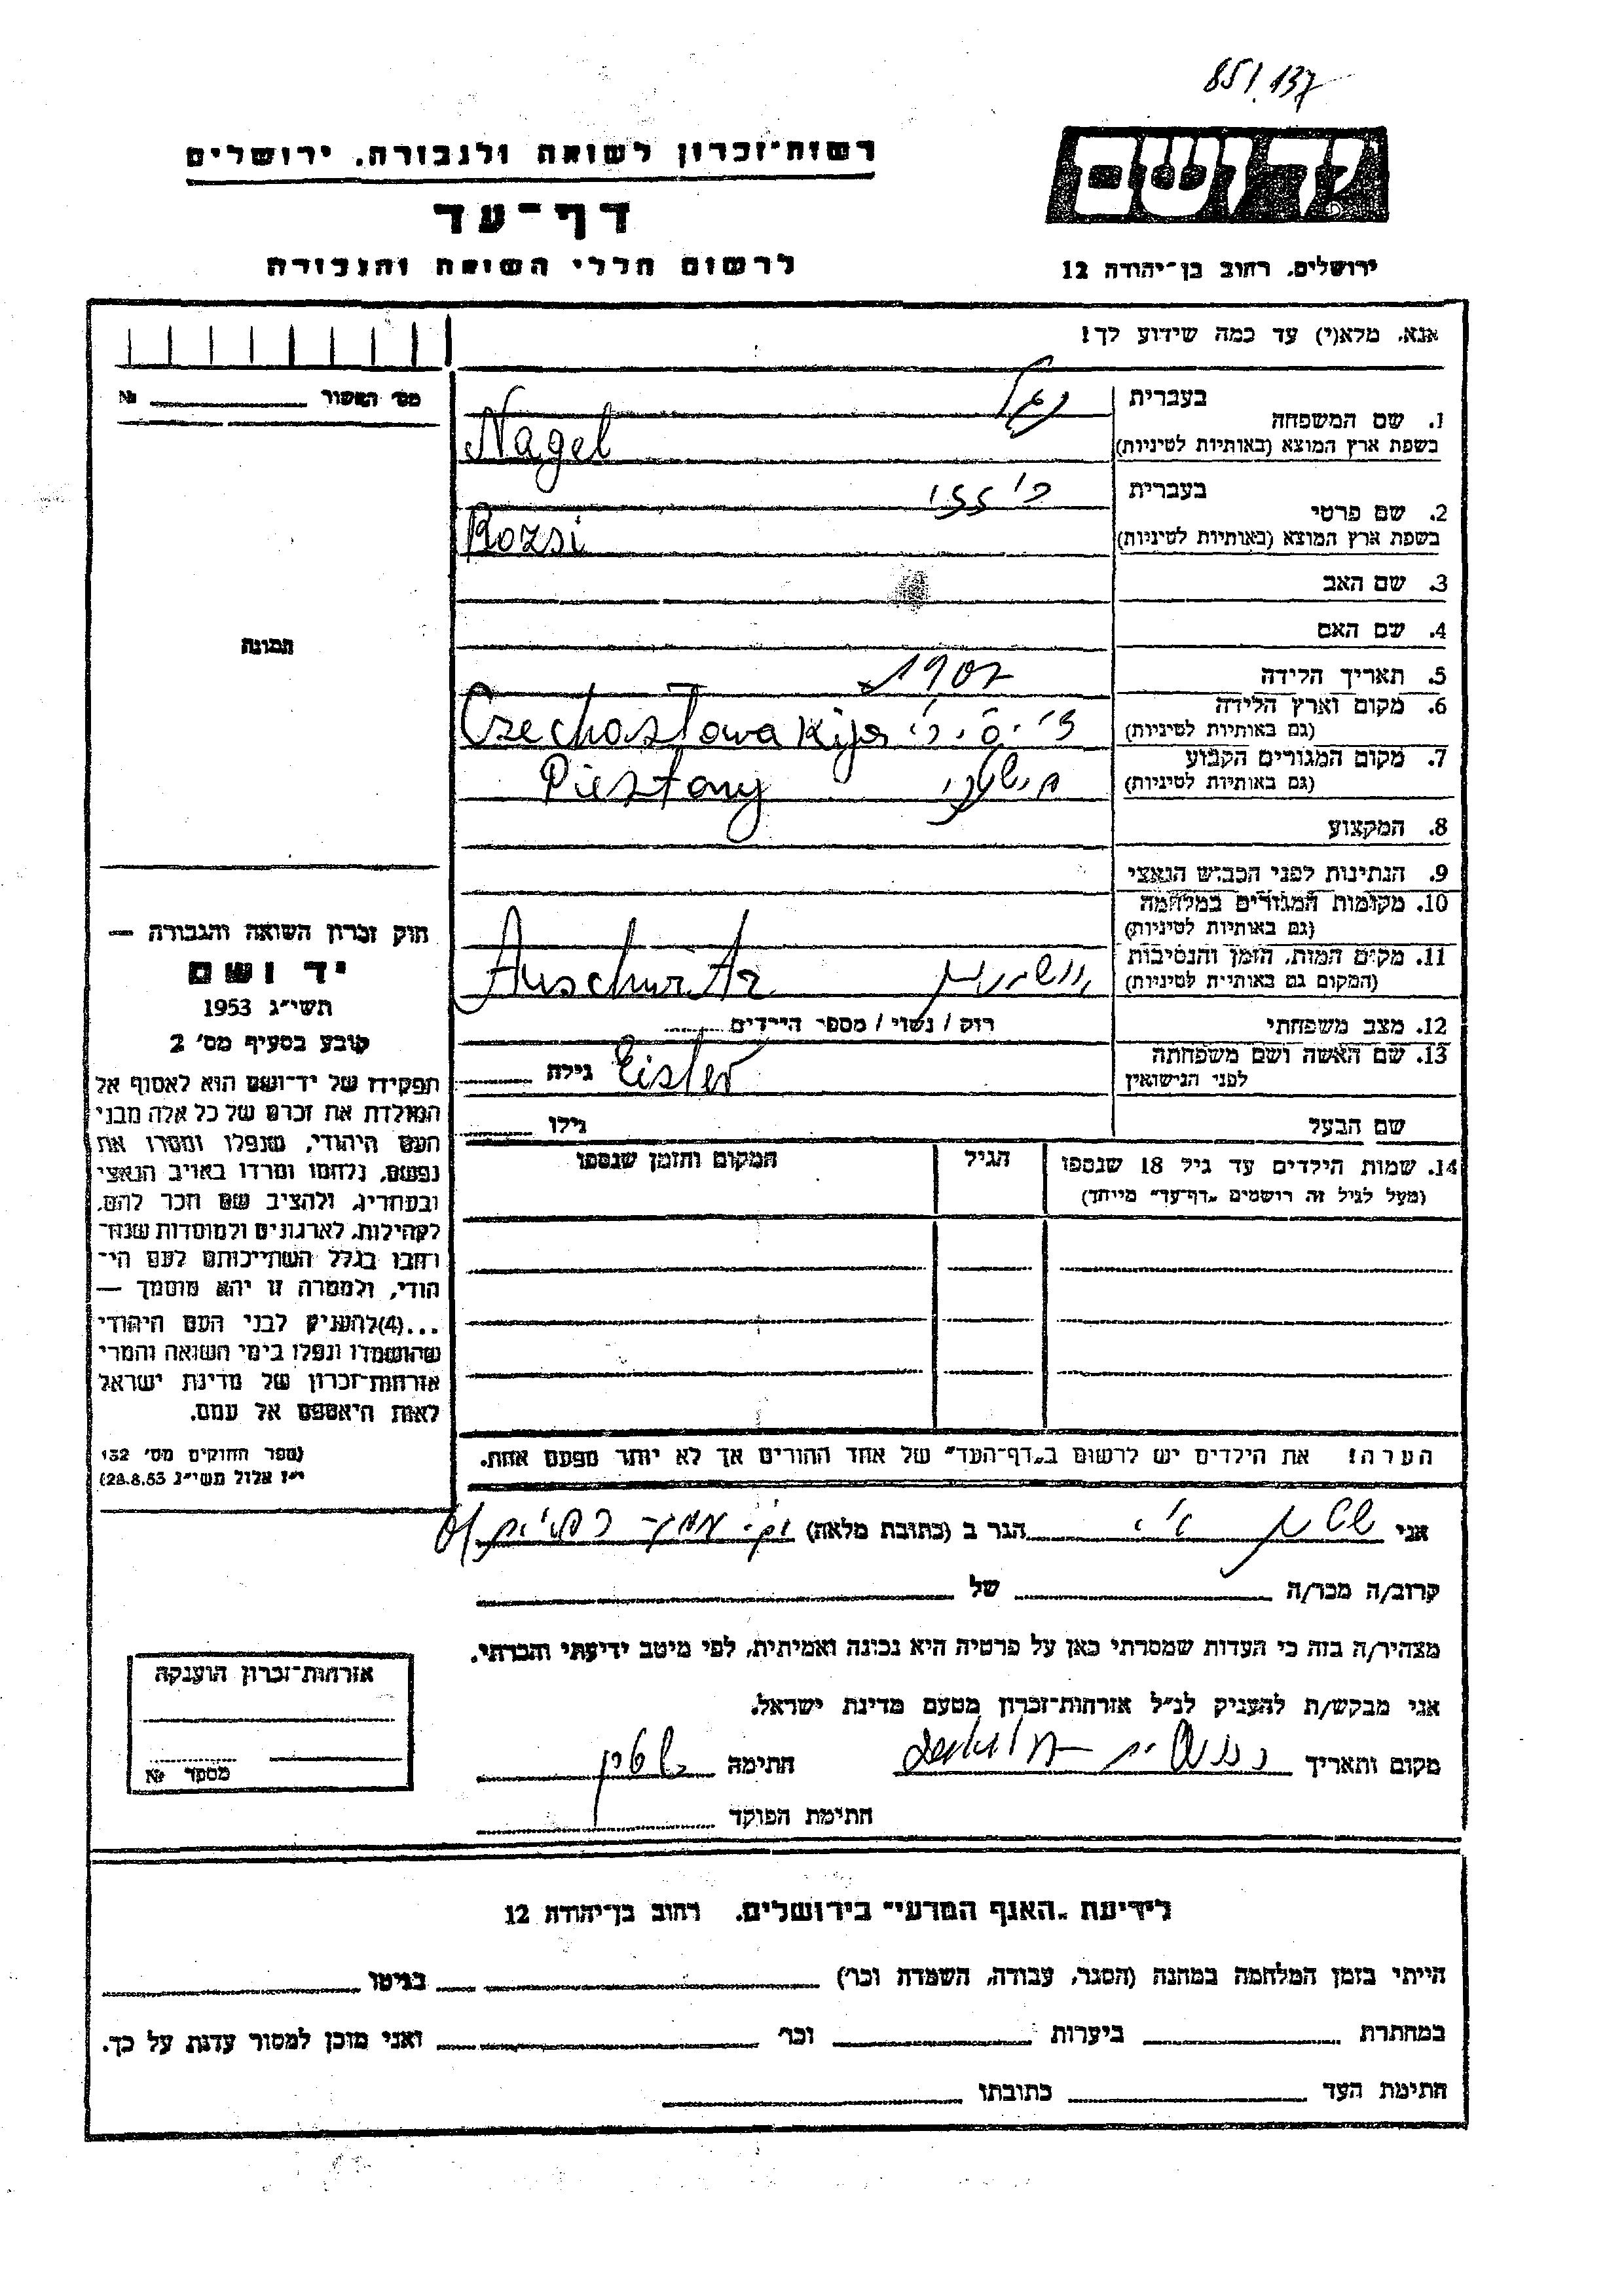 851.137
רשות־זכרון לשואה ולגבורה. ירושלים
יד ושם
דף־עד
לרשום חללי השואה והגבורה
ירושלים. רחוב בן־יהודה 12
אנא, מלא(י) עד כמה שידוע לך!
מס׳ האשור № 
1. שם המשפחה
בעברית
בשפת ארץ המוצא (באותיות לטיניות) Nagel
2. שם פרטי
בעברית
בשפת ארץ המוצא (באותיות לטיניות) Rozsi
3. שם האב
4. שם האם
תמונה
5. תאריך הלידה 1902
6. מקום וארץ הלידה
(גם באותיות לטיניות) Czechosłowakija
7. מקום המגורים הקבוע
(גם באותיות לטיניות) Piestany
8. המקצוע
9. הנתינות לפני הכבוש הנאצי
10. מקומות המגורים במלחמה
(גם באותיות לטיניות)
11. מקום המות, הזמן והנסיבות
(המקום גם באותיות לטיניות) Auschwitz
12. מצב משפחתי רווק / נשוי / מספר הילדים
13. שם האשה ושם משפחתה
לפני הנישואין Eisler גילה
שם הבעל גילו
14. שמות הילדים עד גיל 18 שנספו הגיל המקום והזמן שנספו
(מעל לגיל זה רושמים „דף־עד״ מיוחד)
הערה! את הילדים יש לרשום ב„דף־העד״ של אחד ההורים אך לא יותר מפעם אחת.
חוק זכרון השואה והגבורה —
יד ושם
תשי״ג 1953
קובע בסעיף מס׳ 2
תפקידו של יד־ושם הוא לאסוף אל
המולדת את זכרם של כל אלה מבני
העם היהודי, שנפלו ומסרו את
נפשם, נלחמו ומרדו באויב הנאצי
ובעוזריו, ולהציב שם וזכר להם,
לקהילות, לארגונים ולמוסדות שנח־
רבו בגלל השתייכותם לעם הי־
הודי, ולמטרה זו יהא מוסמך —
...(4) להעניק לבני העם היהודי
שהושמדו ונפלו בימי השואה והמרי
אזרחות־זכרון של מדינת ישראל
לאות היאספם אל עמם.
(ספר החוקים מס׳ 132
י״ז אלול תשי״ג 28.8.53)
אני הגר ב (כתובת מלאה)
קרוב/ה מכר/ה של
מצהיר/ה בזה כי העדות שמסרתי כאן על פרטיה היא נכונה ואמיתית, לפי מיטב ידיעתי והכרתי.
אני מבקש/ת להעניק לנ״ל אזרחות־זכרון מטעם מדינת ישראל.
מקום ותאריך חתימה
חתימת הפוקד
אזרחות־זכרון הוענקה
מספר №
לידיעת „האגף המדעי״ בירושלים. רחוב בן־יהודה 12
הייתי בזמן המלחמה במחנה (הסגר, עבודה, השמדה וכו׳) בגיטו
במחתרת ביערות וכו׳ ואני מוכן למסור עדות על כך.
חתימת העד כתובתו